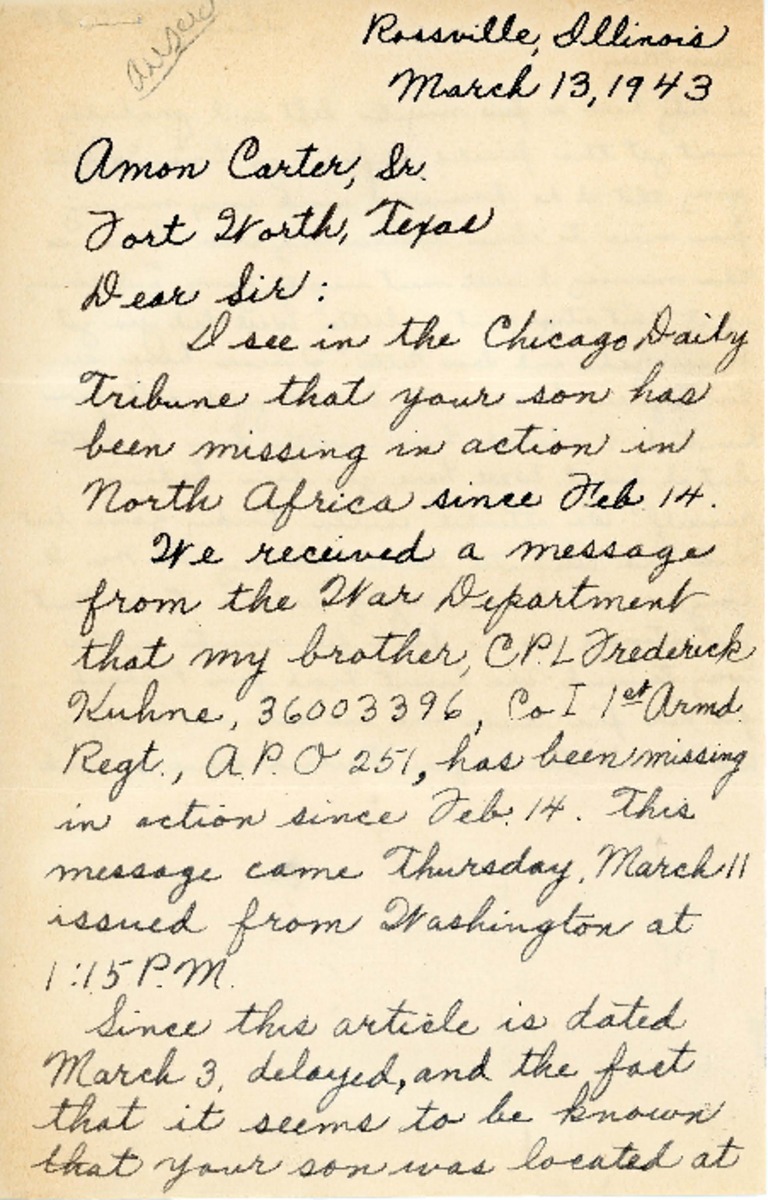 Answered
Rossville, Illinois
March 13, 1943
Amon Carter, Sr.
Fort Worth, Texas
Dear Sir:
I see in the Chicago Daily
Tribune that your son has
been missing in action in
North Africa since Feb 14.
We received a message
from the War Department
that my brother, CPL Frederick
Kuhne, 36003396, Co I 1st Armd.
Regt., A.P.O 251, has been missing
in action since Feb. 14. This
message came Thursday, March 11
issued from Washington at
1:15 P.M.
Since this article is dated
March 3, delayed, and the fact
that it seems to be known
that your son was located at